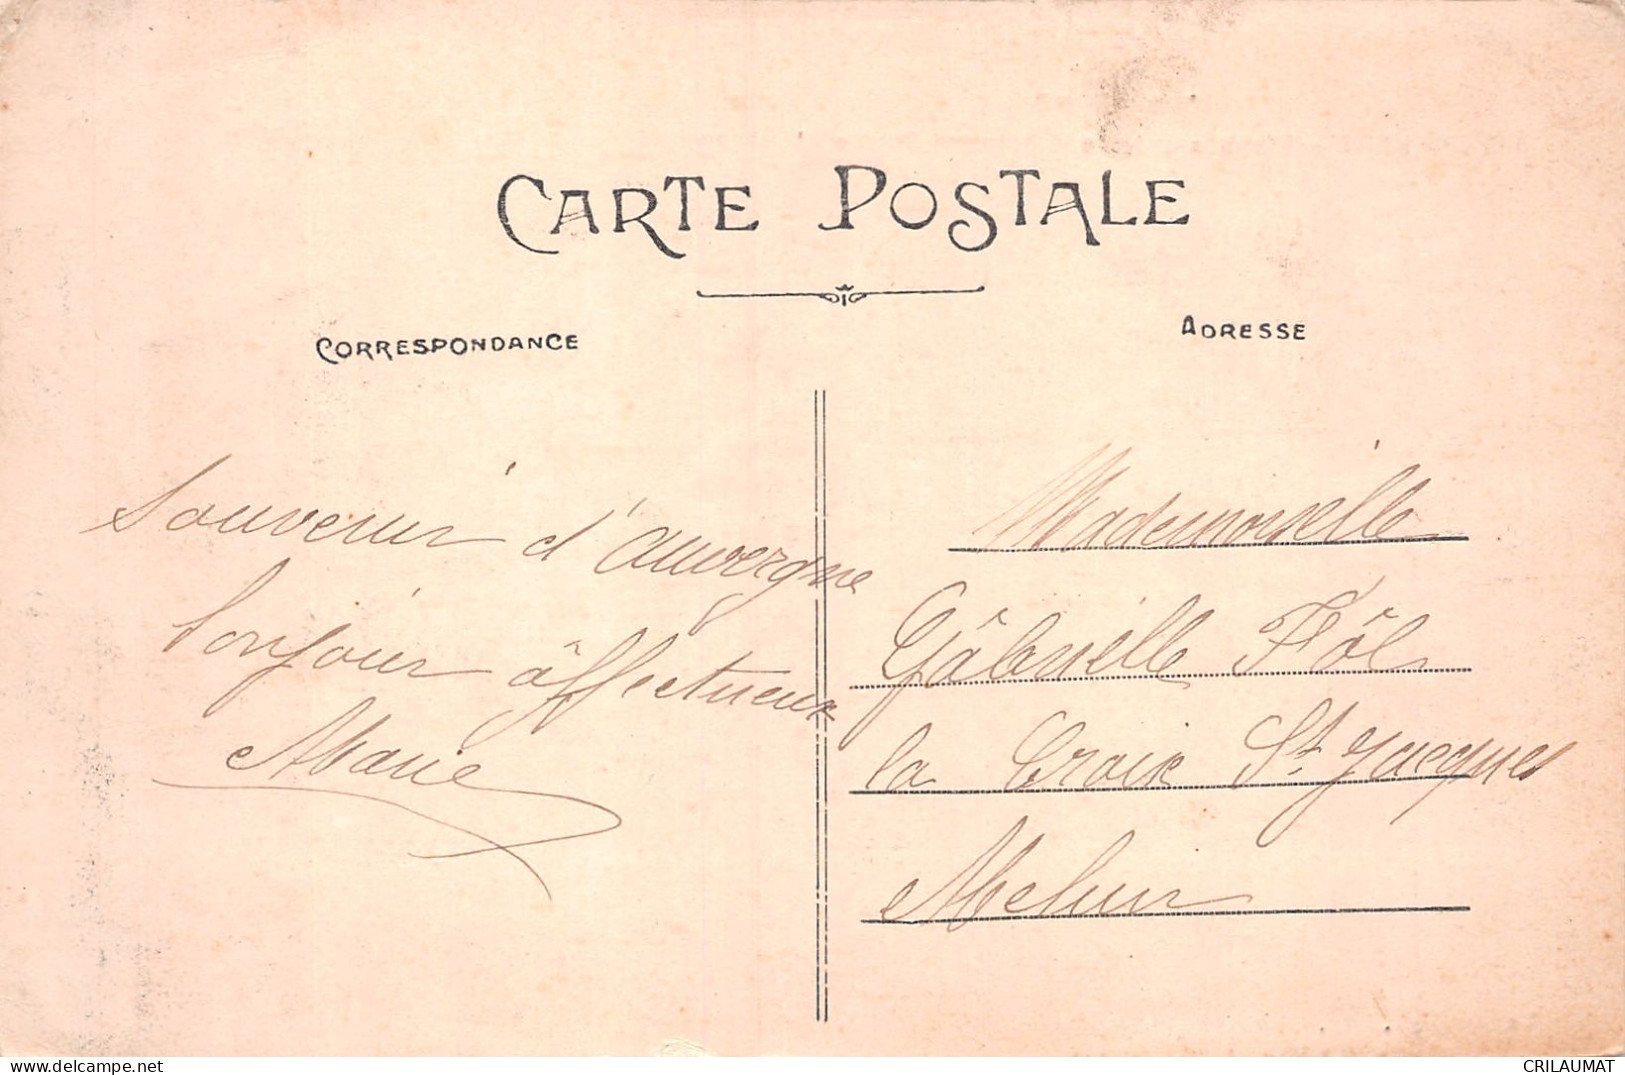 CARTE POSTALE
CORRESPONDANCE
ADRESSE
Souvenir d'auvergne
bonjour âffectueux
Marie
Mademoiselle
Gâbrielle Fôl
la Croix St Jacques
Melun
www.delcampe.net
CRILAUMAT